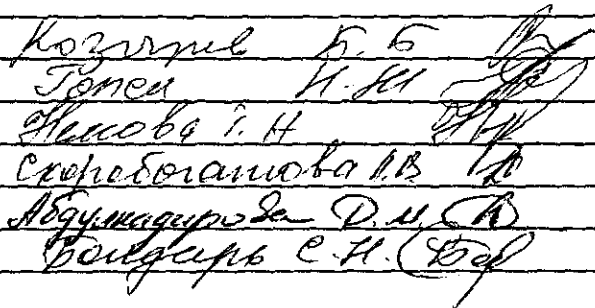 Козырев Б. Б
Гопен И. М
Немова Т. Н
Скоробогатова И.В
Абдулкадирова Д. М.
Бондарь С. Н.